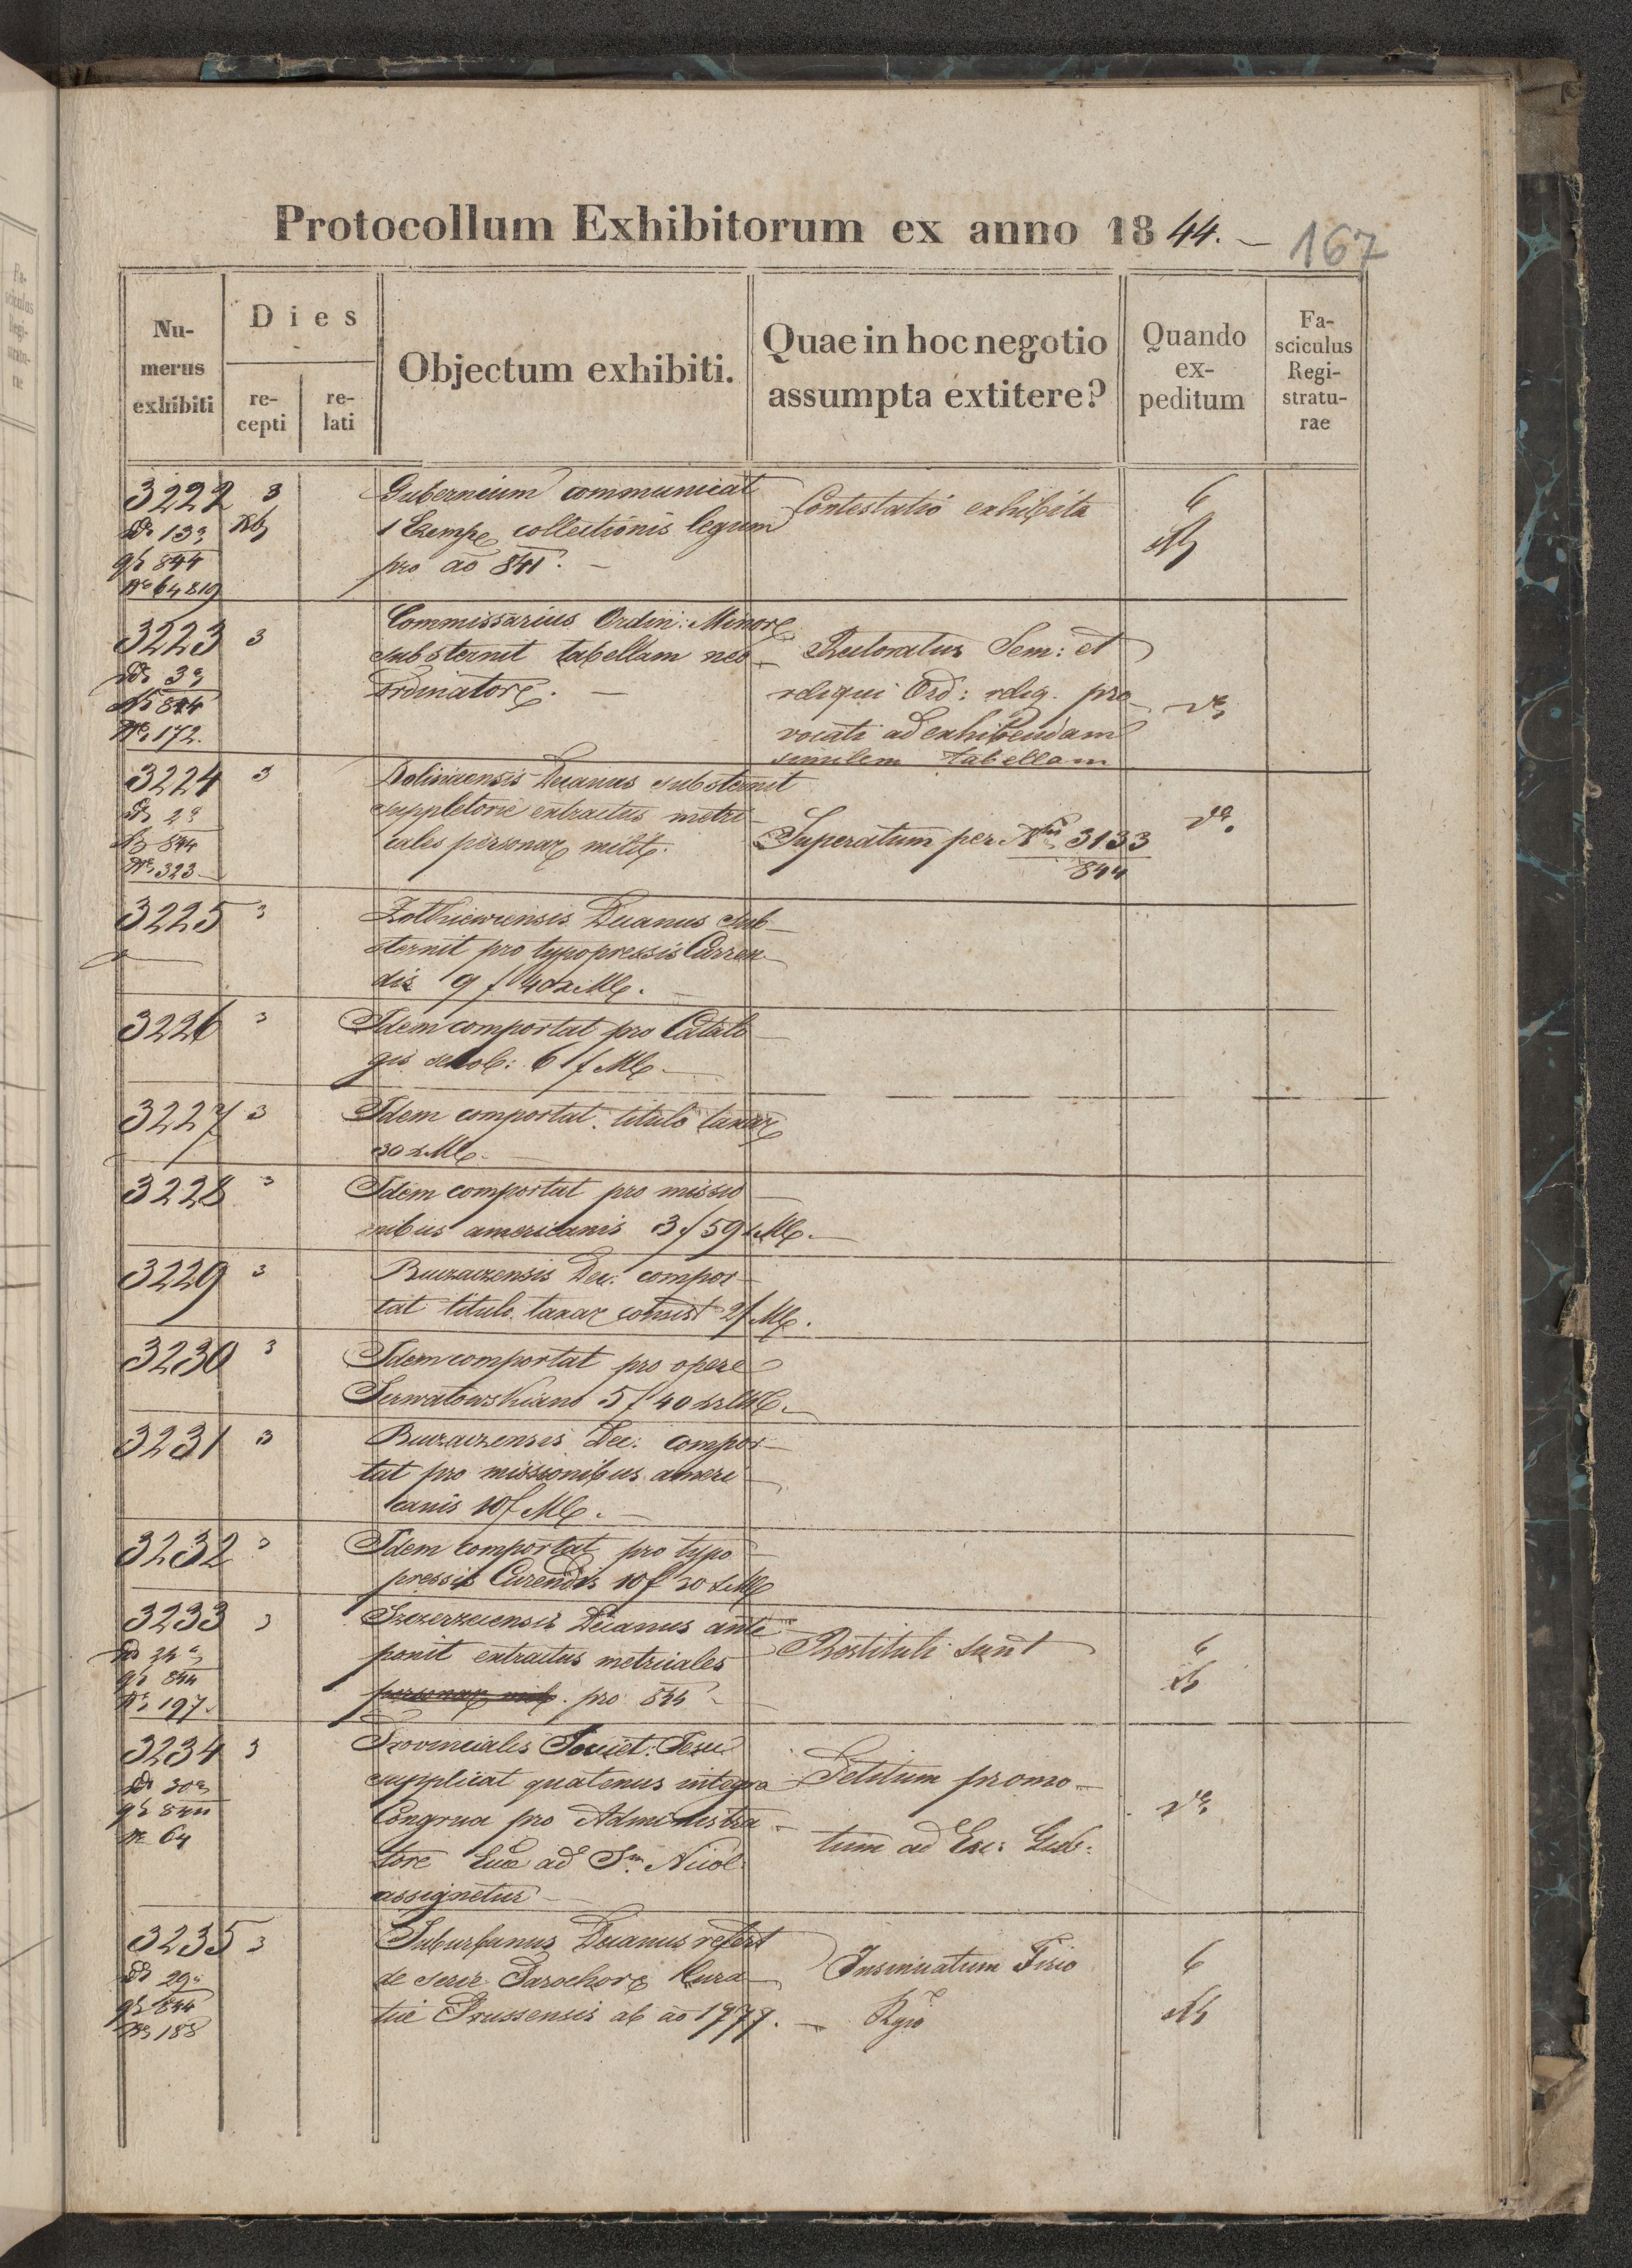 Protocollum Exhibitorum ex anno 1844. —
167
Nu-
merus
exhibiti
Dies
re-
cepti
re-
lati
Objectum exhibiti.
Quae in hoc negotio
assumpta extitere?
Quando
ex-
peditum
Fa-
sciculus
Regi-
stratu-
rae
3222 3
844
64819
Gubernium communicat
1 Exempl collectionis legum
pro ao 841. —
Contestatio exhibita
6
3223 3
844
172.
Commissarius Ordin: Minor
substernit tabellam neo
ordinator. —
Rectoratus Sem: et
reliqui Ord: relig. pro
vocati ad exhibendam
similem tabellam
3224 3
844
323
Dolinensis Decanus substernit
suppletorie extractus metri
cales personar milit.
Superatum per Nrum 3133
844
3225 3
Zolkiewiensis Decanus sub
sternit pro typopressis Curren
dis 9 f 40 x MC.
3226 3
Idem comportat pro Catalo
gis 6 f MC.
3227 3
Idem comportat titulo taxar
30 x MC.
3228 3
Idem comportat pro missio
nibus americanis 3 f 59 x MC.
3229 3
Buczaczensis Dec: compor
tat titulo taxar consist 2 f MC.
3230 3
Idem comportat pro opere
Serwatowskiano 5 f 40 xr MC.
3231 3
Buczaczensis Dec: compor
tat pro missionibus ameri
canis 10 f MC.
3232 3
Idem comportat pro typo
pressis Curendis 10 f 30 x MC
3233 3
844
197.
Szczerzecensis Decanus ante
ponit extractus metricales
pro 844
Restituti sunt
6
3234 3
844
64
Provincialis Societ: Jesu
supplicat quatenus integra
Congrua pro Administra
tore Eccl ad Sm Nicol
assignetur
Petitum promo
tum ad Exc: Gub:
3235 3
29
844
188
Suburbanus Decanus refert
de serie Parochor Cura
tiae Prussensis ab ao 1777.
Insinuatum Fisco
Rgio
6